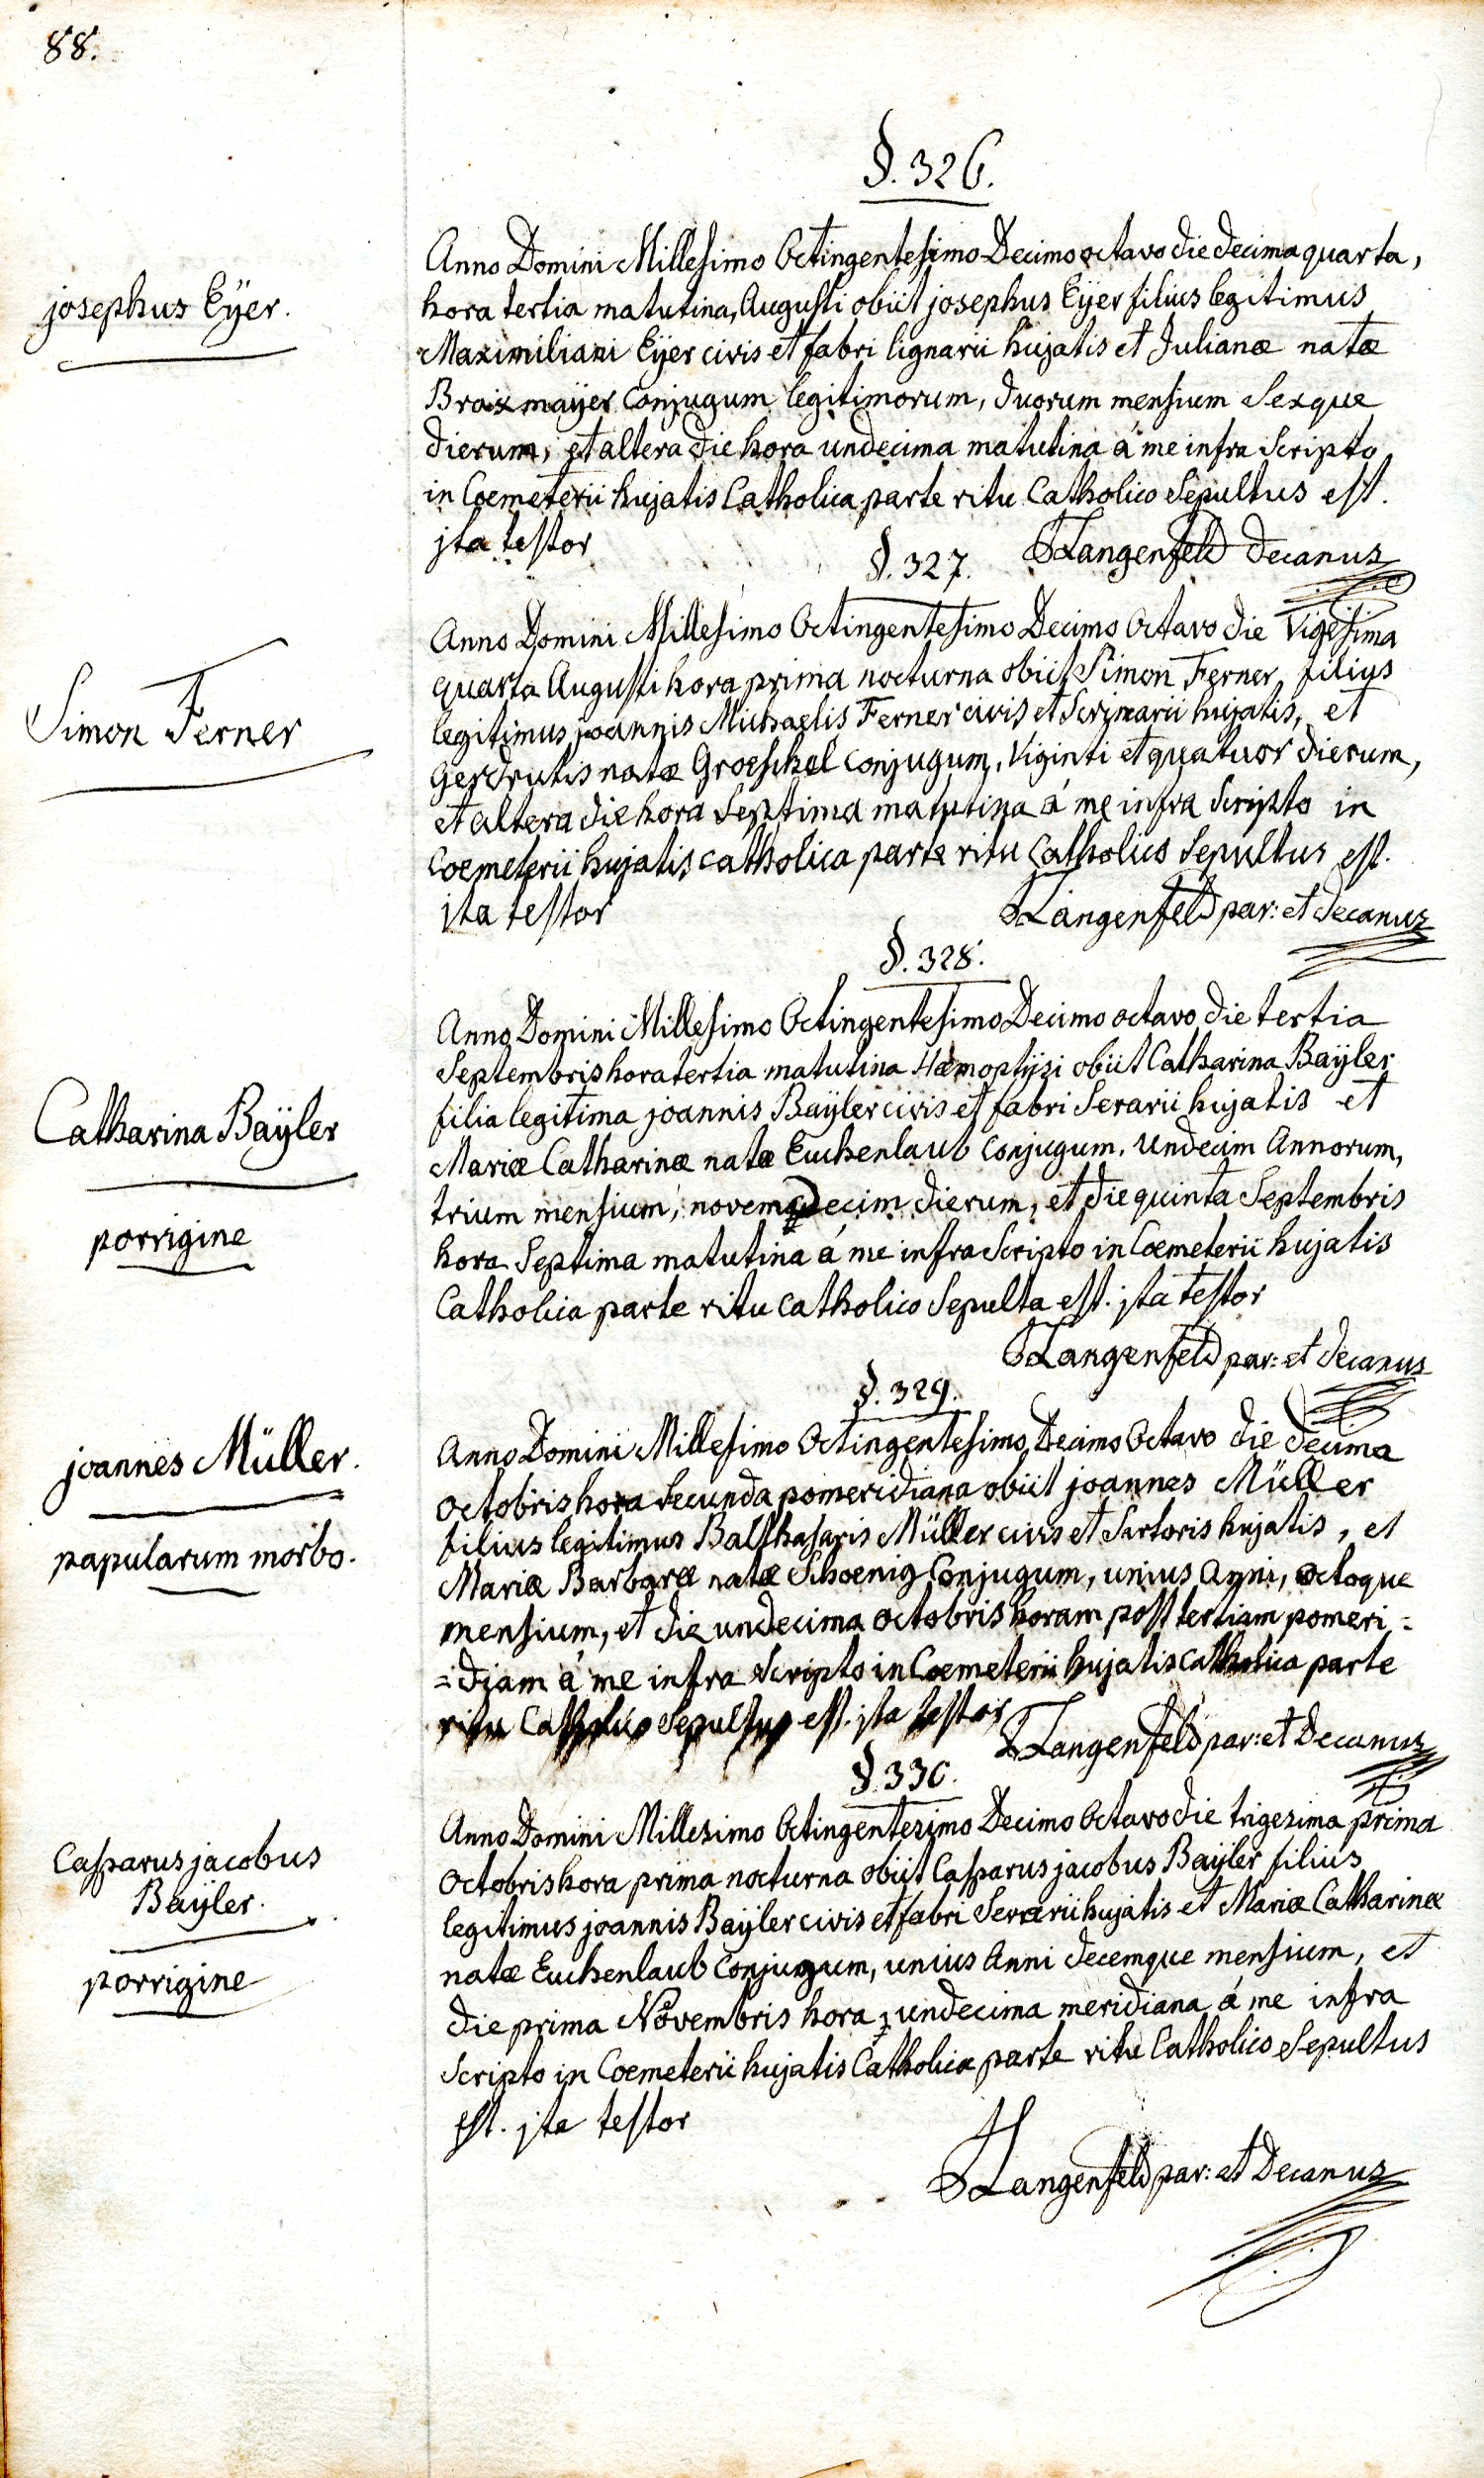 88.
§. 326.
josephus Eÿer.
Anno Domini Millesimo Octingentesimo Decimo octavo die decima quarta,
hora tertia matutina, Augusti obiit josephus Eÿer filius legitimus
Maximiliani Eÿer civis et fabri lignarii hujatis et Julianæ natæ
Braixmaÿer Conjugum legitimorum, duorum mensium Sexque
dierum, et altera die hora undecima matutina á me infra Scripto
in Coemeterii hujatis Catholica parte ritu Catholico Sepultus est.
jta testor
Langenfeld decanus
§. 327.
Simon Ferner
Anno Domini Millesimo Octingentesimo Decimo Octavo die Vigesima
quarta Augusti hora prima nocturna obiit Simon Ferner, filius
legitimus joannis Michaelis Ferner civis et Scrinarii hujatis, et
Gerdrutis natæ Groeschel Conjugum, Viginti et quatuor dierum,
et altera die hora Septima matutina á me infra Scripto in
Coemeterii hujatis catholica parte ritu Catholico Sepultus est.
jta testor
Langenfeld par: et decanus
§. 328.
Catharina Baÿler
porrigine
Anno Domini Millesimo Octingentesimo Decimo octavo die tertia
Septembris hora tertia matutina Hæmoptÿsi obiit Catharina Baÿler
filia legitima joannis Baÿler civis et fabri Serarii hujatis et
Mariæ Catharinæ natæ Euchenlaub Conjugum, undecim Annorum,
trium mensium, novemdecim dierum, et die quinta Septembris
hora Septima matutina á me infra Scripto in Coemeterii hujatis
Catholica parte ritu catholico Sepulta est. jta testor
Langenfeld par: et decanus
§. 329.
joannes Müller.
papularum morbo.
Anno Domini Millesimo Octingentesimo Decimo Octavo die decima
octobris hora Secunda pomeridiana obiit joannes Müller
filius legitimus Balthasaris Müller civis et Sartoris hujatis, et
Mariæ Barbaræ natæ Schoenig Conjugum, unius Anni, octoque
mensium, et die undecima octobris horam post tertiam pomeri=
=diam á me infra Scripto in Coemeterii hujatis catholica parte
ritu Catholico Sepultus est. jta testor
Langenfeld par: et Decanus
§. 330.
Casparus jacobus
Baÿler.
porrigine
Anno Domini Millesimo Octingentesimo Decimo Octavo die trigesima prima
Octobris hora prima nocturna obiit Casparus jacobus Baÿler filius
legitimus joannis Baÿler civis et fabri Serarii hujatis et Mariæ Catharinæ
natæ Euchenlaub Conjugum, unius Anni decemque mensium, et
die prima Novembris hora undecima meridiana á me infra
Scripto in Coemeterii hujatis Catholica parte ritu Catholico Sepultus
est. jta testor
Langenfeld par: et Decanus